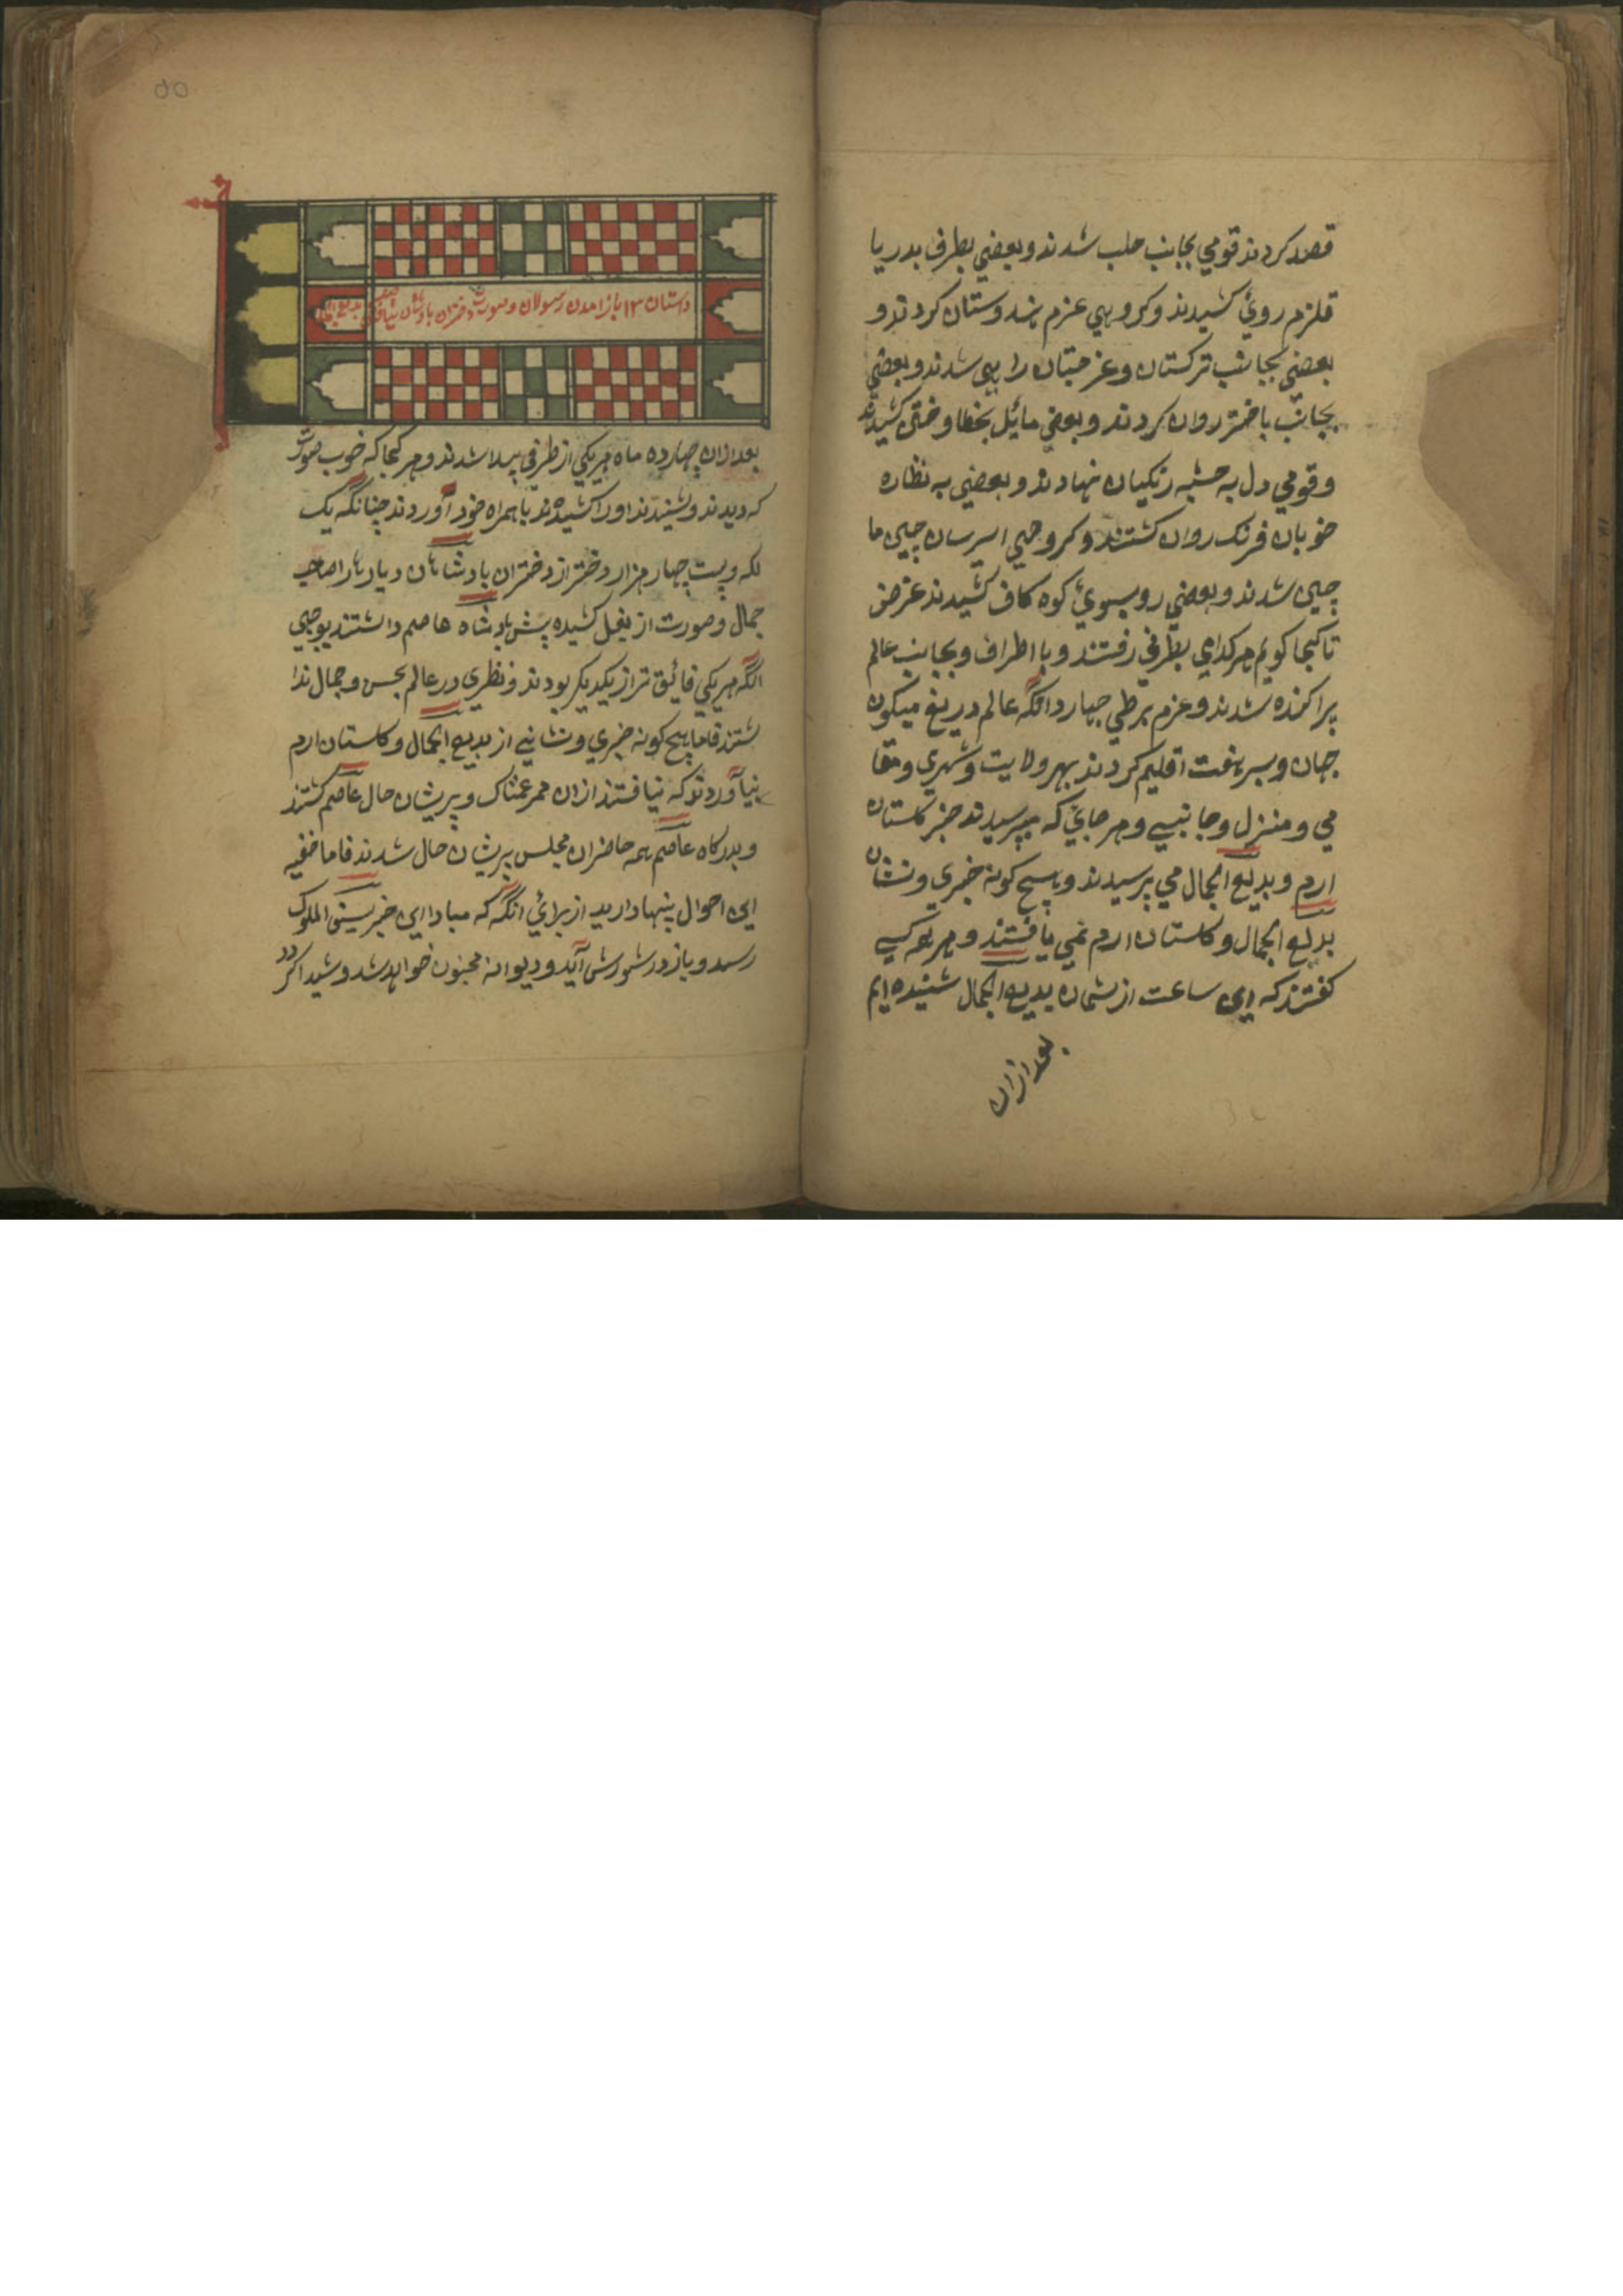 قصد کردند قومی بجانب حلب شدند و بعضی بطرف بدریا
قلزم روئ کشیدند و کروهی عزم هندوستان کردند و
بعضی بجانب ترکستان و عزم ختان راهی شدند و بعضی
بجانب باختر روان کردند و بعضی مائل بخطا و ختن کشیدند
و قومی دل به حبشه زنکیان نهادند و بعضی به نظاره
خوبان فرنک روان کشتند و کروهی چین ما
چین شدند و بعضی رو بسوئ کوه کاف کشیدند غرض
تا کجا کویم هر کدامی بطرفی رفتند و با اطراف و بجانب عالم
پراکنده شدند و عزم برطی چهار دانکه عالم دریغ میکون
جهان و سیر هفت اقلیم کردند بهر ولایت و شهری و مقا
می و منزل و جانبی و هر جایئ که میپرسیدند خبر کلستان
ارم و بدیع الجمال می پرسیدند و هیچ کونه خبری و نشان
بدیع الجمال و کلستان ارم نمی یافتند و هر که کسی
کفتند که این ساعت از شمان بدیع الجمال شنیده ایم
بعد ازان
داستان ۱۳ باز امدن رسولان و صورت دختران بادشاهان نیافتن بدیع الجمال
بعد ازان چهارده ماه هر یکی از طرفی پیدا شدند و هر کجا که خوب صورت
که دیدند و شنیدند اورا کشیدند با همراه خود آوردند چنانکه یک
لکه و بست چهار هزار دختر از دختران بادشاهان دیارها صاحب
جمال و صورت از کشیده پش بادشاه عاصم داشتند بوجهی
انکه هر یکی فائق تر از یکدیکر بودند و نظری در عالم بحسن و جمال ندا
شتند فاما هیچ کونه خبری و نشانی از بدیع الجمال و کلستان ارم
نیآوردند که نیافتند ازان ممر غمناک و پریشان حال عاصم کشتند
و بدرکاه عاصم همه حاضران مجلس پریشان حال شدند فاما خفیه
این احوال پنها دارید از برائ انکه که مبادا این خبر سیف الملوک
رسد و باز در شورش آید و دیوانه مجنون خواهد شد و شیدا کردد